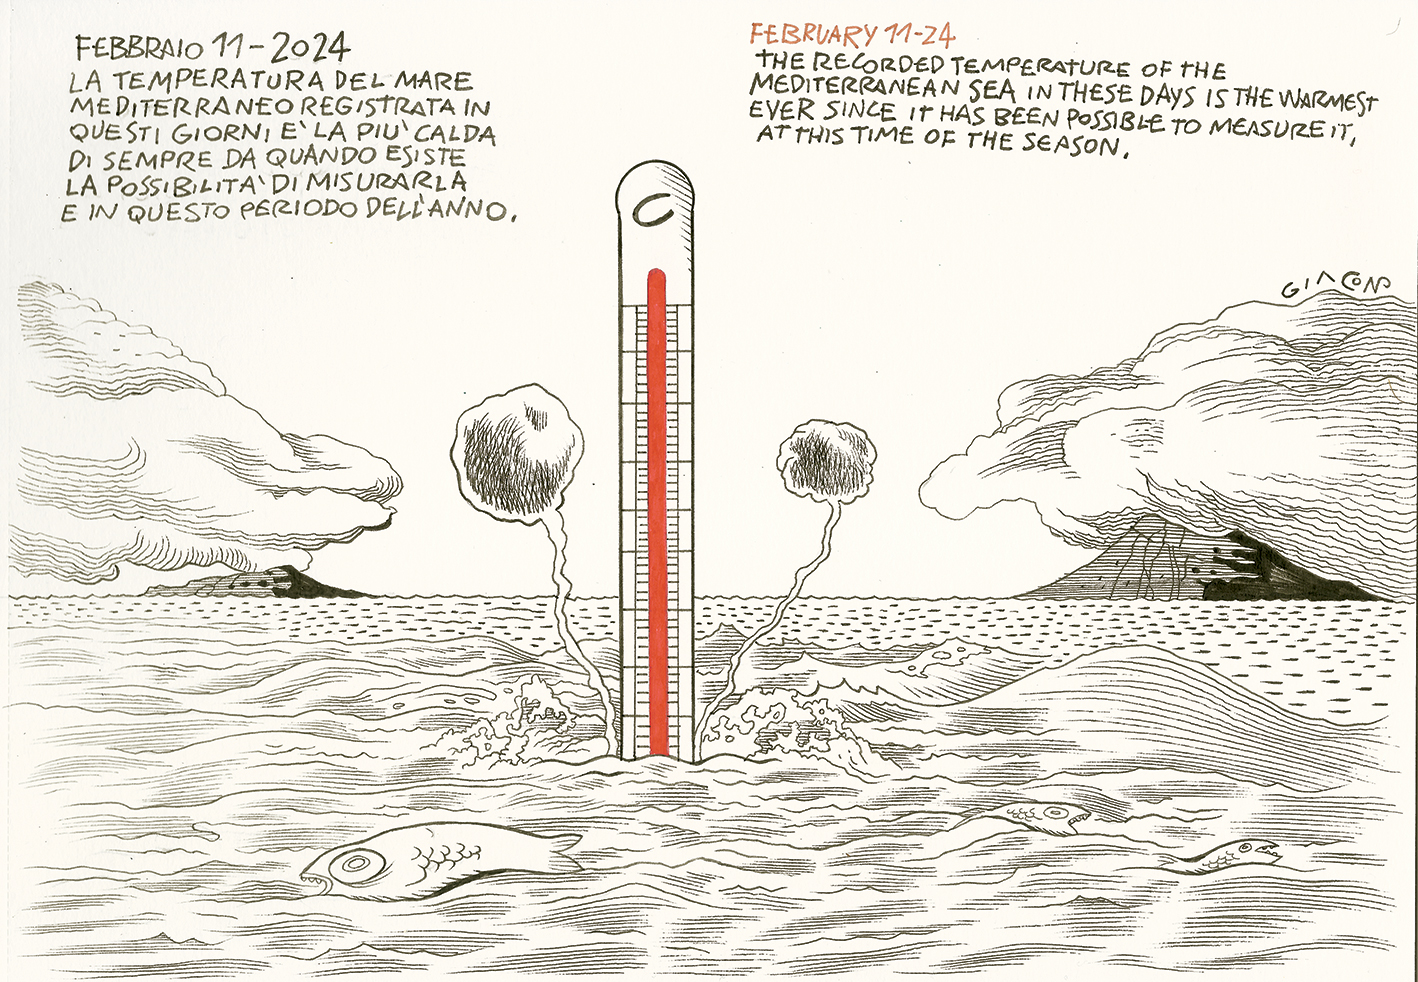 FEBBRAIO 11-2024
LA TEMPERATURA DEL MARE
MEDITERRANEO REGISTRATA IN
QUESTI GIORNI E' LA PIU' CALDA
DI SEMPRE DA QUANDO ESISTE
LA POSSIBILITA' DI MISURARLA
E IN QUESTO PERIODO DELL'ANNO.
FEBRUARY 11-24
THE RECORDED TEMPERATURE OF THE
MEDITERRANEAN SEA IN THESE DAYS IS THE WARMEST
EVER SINCE IT HAS BEEN POSSIBLE TO MEASURE IT,
AT THIS TIME OF THE SEASON.
C
GIACON